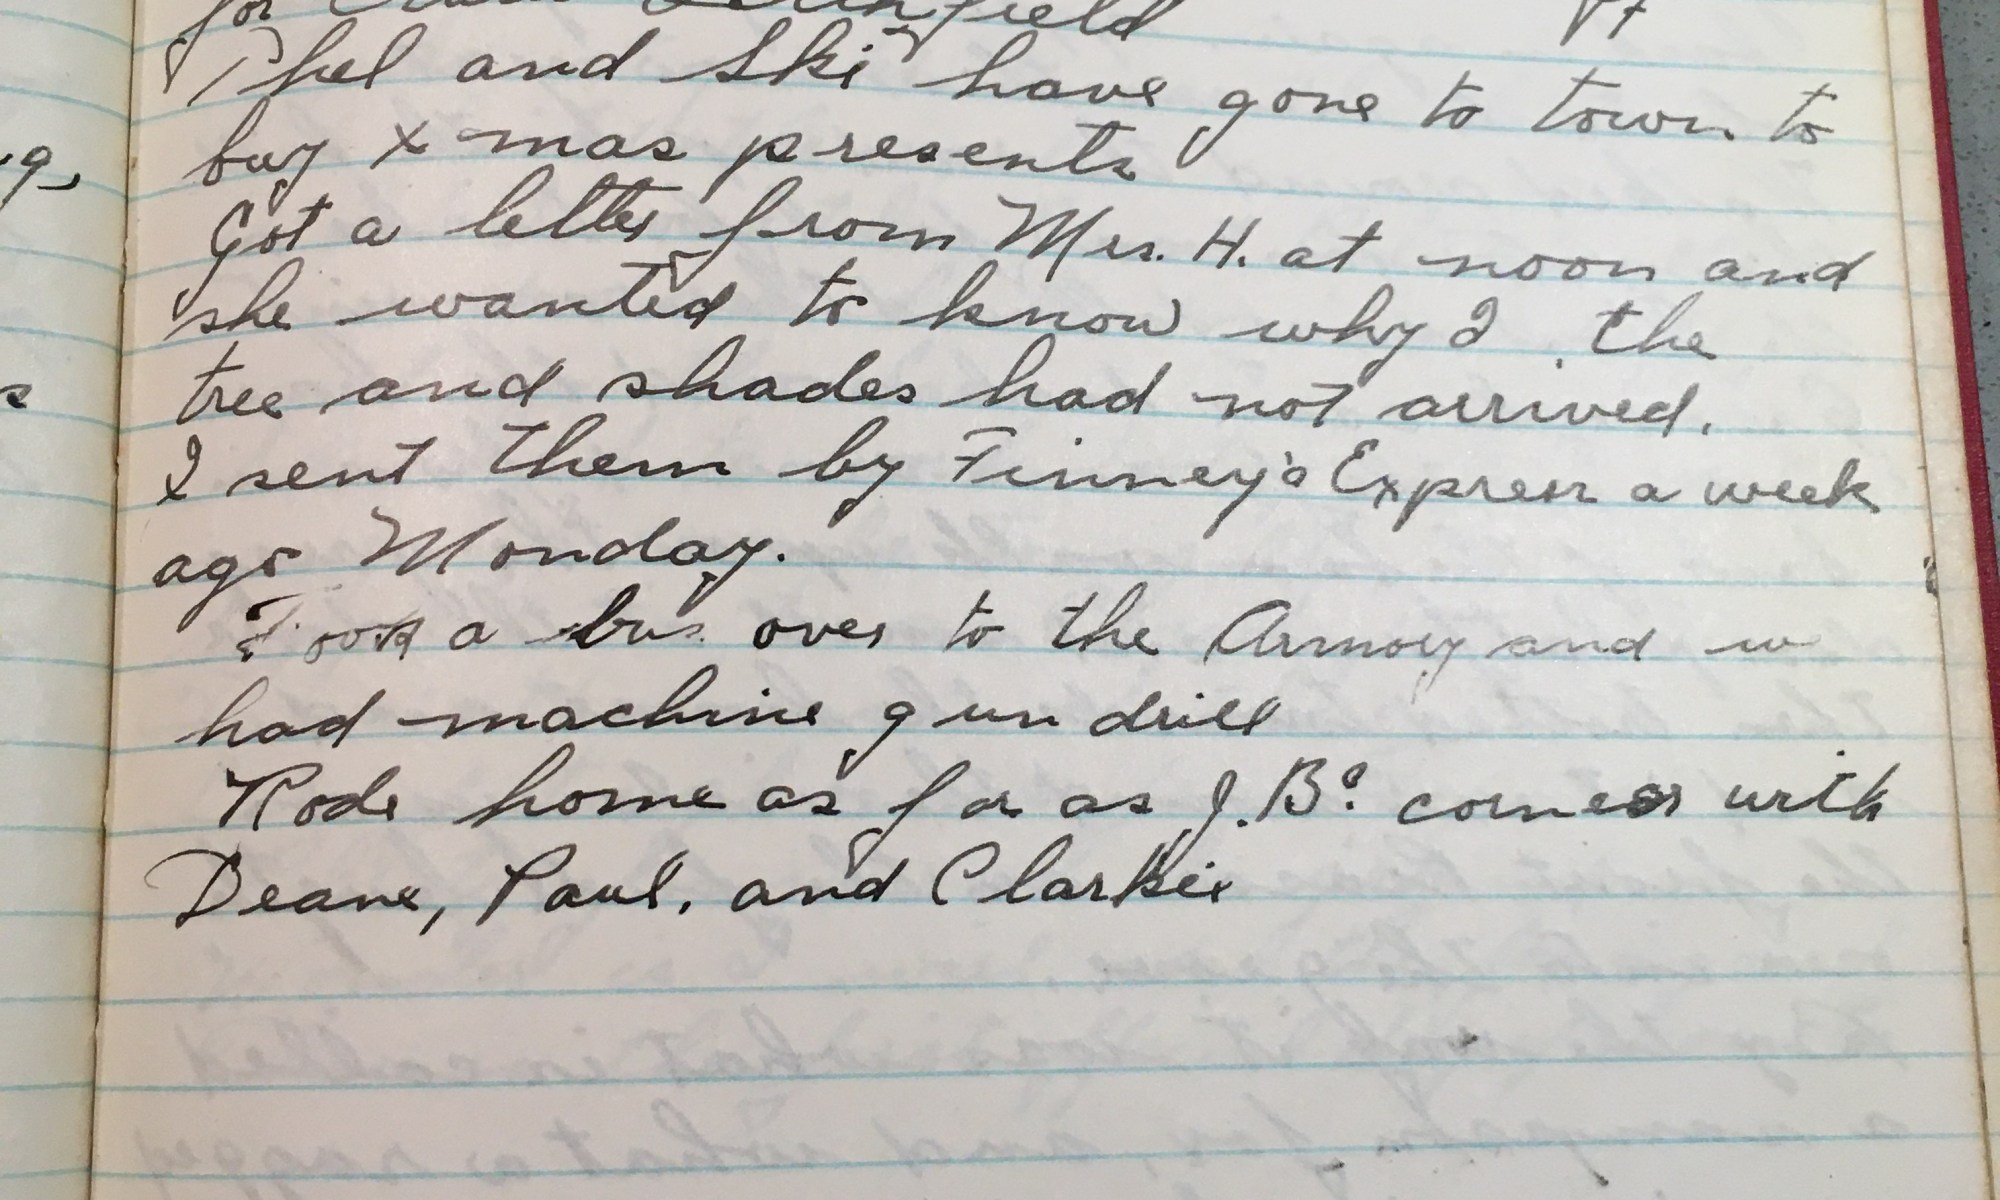 for field
Phel and Ski have gone to town to
buy x-mas presents
Got a letter from Mrs. H. at noon and
she wanted to know why I the
tree and shades had not arrived.
I sent them by Finney's Express a week
ago Monday.
Took a bus over to the Armory and w
had machine gun drill
Rode home as far as J.B's corner with
Deane, Paul, and Clarkie